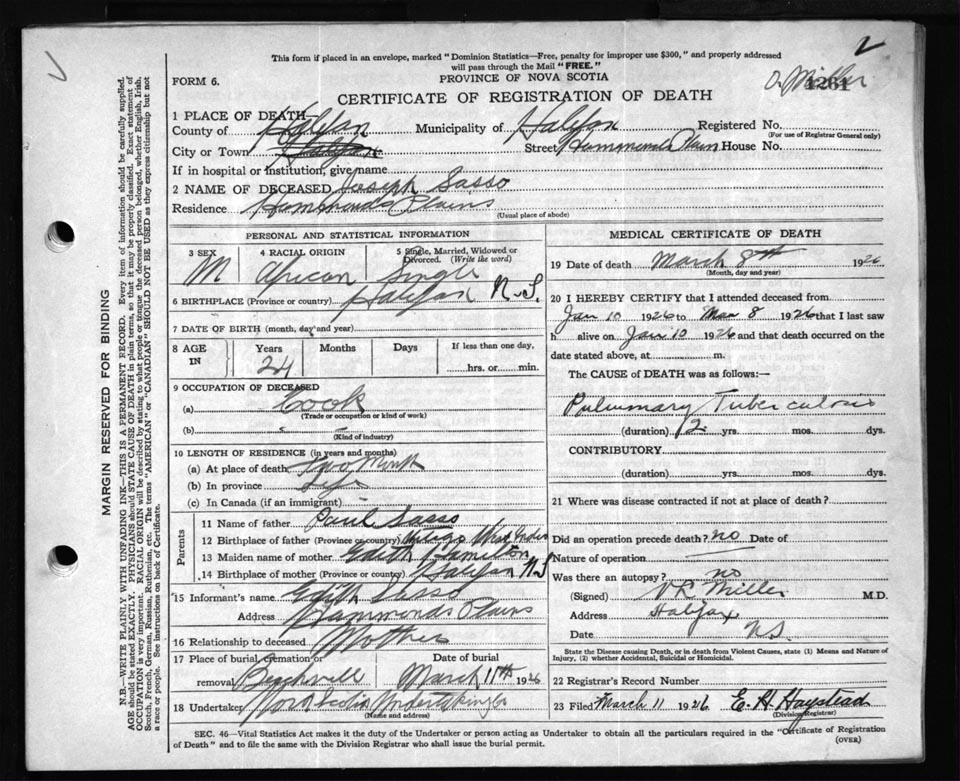 2
This form if placed in an envelope, marked "Dominion Statistics—Free, penalty for improper use $300," and properly addressed
will pass through the Mail "FREE."
FORM 6.
PROVINCE OF NOVA SCOTIA
1261
CERTIFICATE OF REGISTRATION OF DEATH
1 PLACE OF DEATH
County of Halifax Municipality of Halifax Registered No.
(For use of Registrar General only)
City or Town Halifax Street Hammonds Plains House No.
If in hospital or institution, give name
2 NAME OF DECEASED Joseph Sasso
Residence Hammonds Plains
(Usual place of abode)
PERSONAL AND STATISTICAL INFORMATION
3 SEX 4 RACIAL ORIGIN 5 Single, Married, Widowed or Divorced. (Write the word)
M African Single
6 BIRTHPLACE (Province or country) Halifax N.S.
7 DATE OF BIRTH (month, day and year)
8 AGE IN Years Months Days If less than one day,
24 hrs. or min.
9 OCCUPATION OF DECEASED
(a) Cook
(Trade or occupation or kind of work)
(b)
(Kind of industry)
10 LENGTH OF RESIDENCE (in years and months)
(a) At place of death Two Month
(b) In province Life
(c) In Canada (if an immigrant)
Parents
11 Name of father Paul Sasso
12 Birthplace of father (Province or country) West Indies
13 Maiden name of mother Edith Hamilton
14 Birthplace of mother (Province or country) Halifax NS
15 Informant's name Edith Sasso
Address Hammonds Plains
16 Relationship to deceased Mother
17 Place of burial, cremation or Date of burial
removal Beechville March 11th 1926
18 Undertaker Nova Scotia Undertaking Co
(Name and address)
MEDICAL CERTIFICATE OF DEATH
19 Date of death March 8th 1926
(Month, day and year)
20 I HEREBY CERTIFY that I attended deceased from
Jan 10 1926 to Mar 8 1926 that I last saw
h alive on Jan 10 1926 and that death occurred on the
date stated above, at m.
The CAUSE of DEATH was as follows:—
Pulmonary Tuberculosis
(duration) 2 yrs. mos. dys.
CONTRIBUTORY
(duration) yrs. mos. dys.
21 Where was disease contracted if not at place of death?
Did an operation precede death? no Date of
Nature of operation
Was there an autopsy? no
(Signed) Miller M.D.
Address Halifax
Date N.S.
State the Disease causing Death, or in death from Violent Causes, state (1) Means and Nature of
Injury, (2) whether Accidental, Suicidal or Homicidal.
22 Registrar's Record Number
23 Filed March 11 1926 E. H. Haystead
(Division Registrar)
SEC. 46—Vital Statistics Act makes it the duty of the Undertaker or person acting as Undertaker to obtain all the particulars required in the "Certificate of Registration
of Death" and to file the same with the Division Registrar who shall issue the burial permit.
(OVER)
MARGIN RESERVED FOR BINDING
N.B.—WRITE PLAINLY WITH UNFADING INK—THIS IS A PERMANENT RECORD. Every item of information should be carefully supplied.
AGE should be stated EXACTLY. PHYSICIANS should STATE CAUSE OF DEATH in plain terms, so that it may be properly classified. Exact statement of
OCCUPATION is very important. RACIAL ORIGIN will be described by stating to what people or tongue the deceased person belonged, whether English, Irish,
Scotch, French, German, Russian, Ruthenian, etc. The terms "AMERICAN" or "CANADIAN" SHOULD NOT BE USED as they express citizenship but not
a race or people. See instructions on back of Certificate.